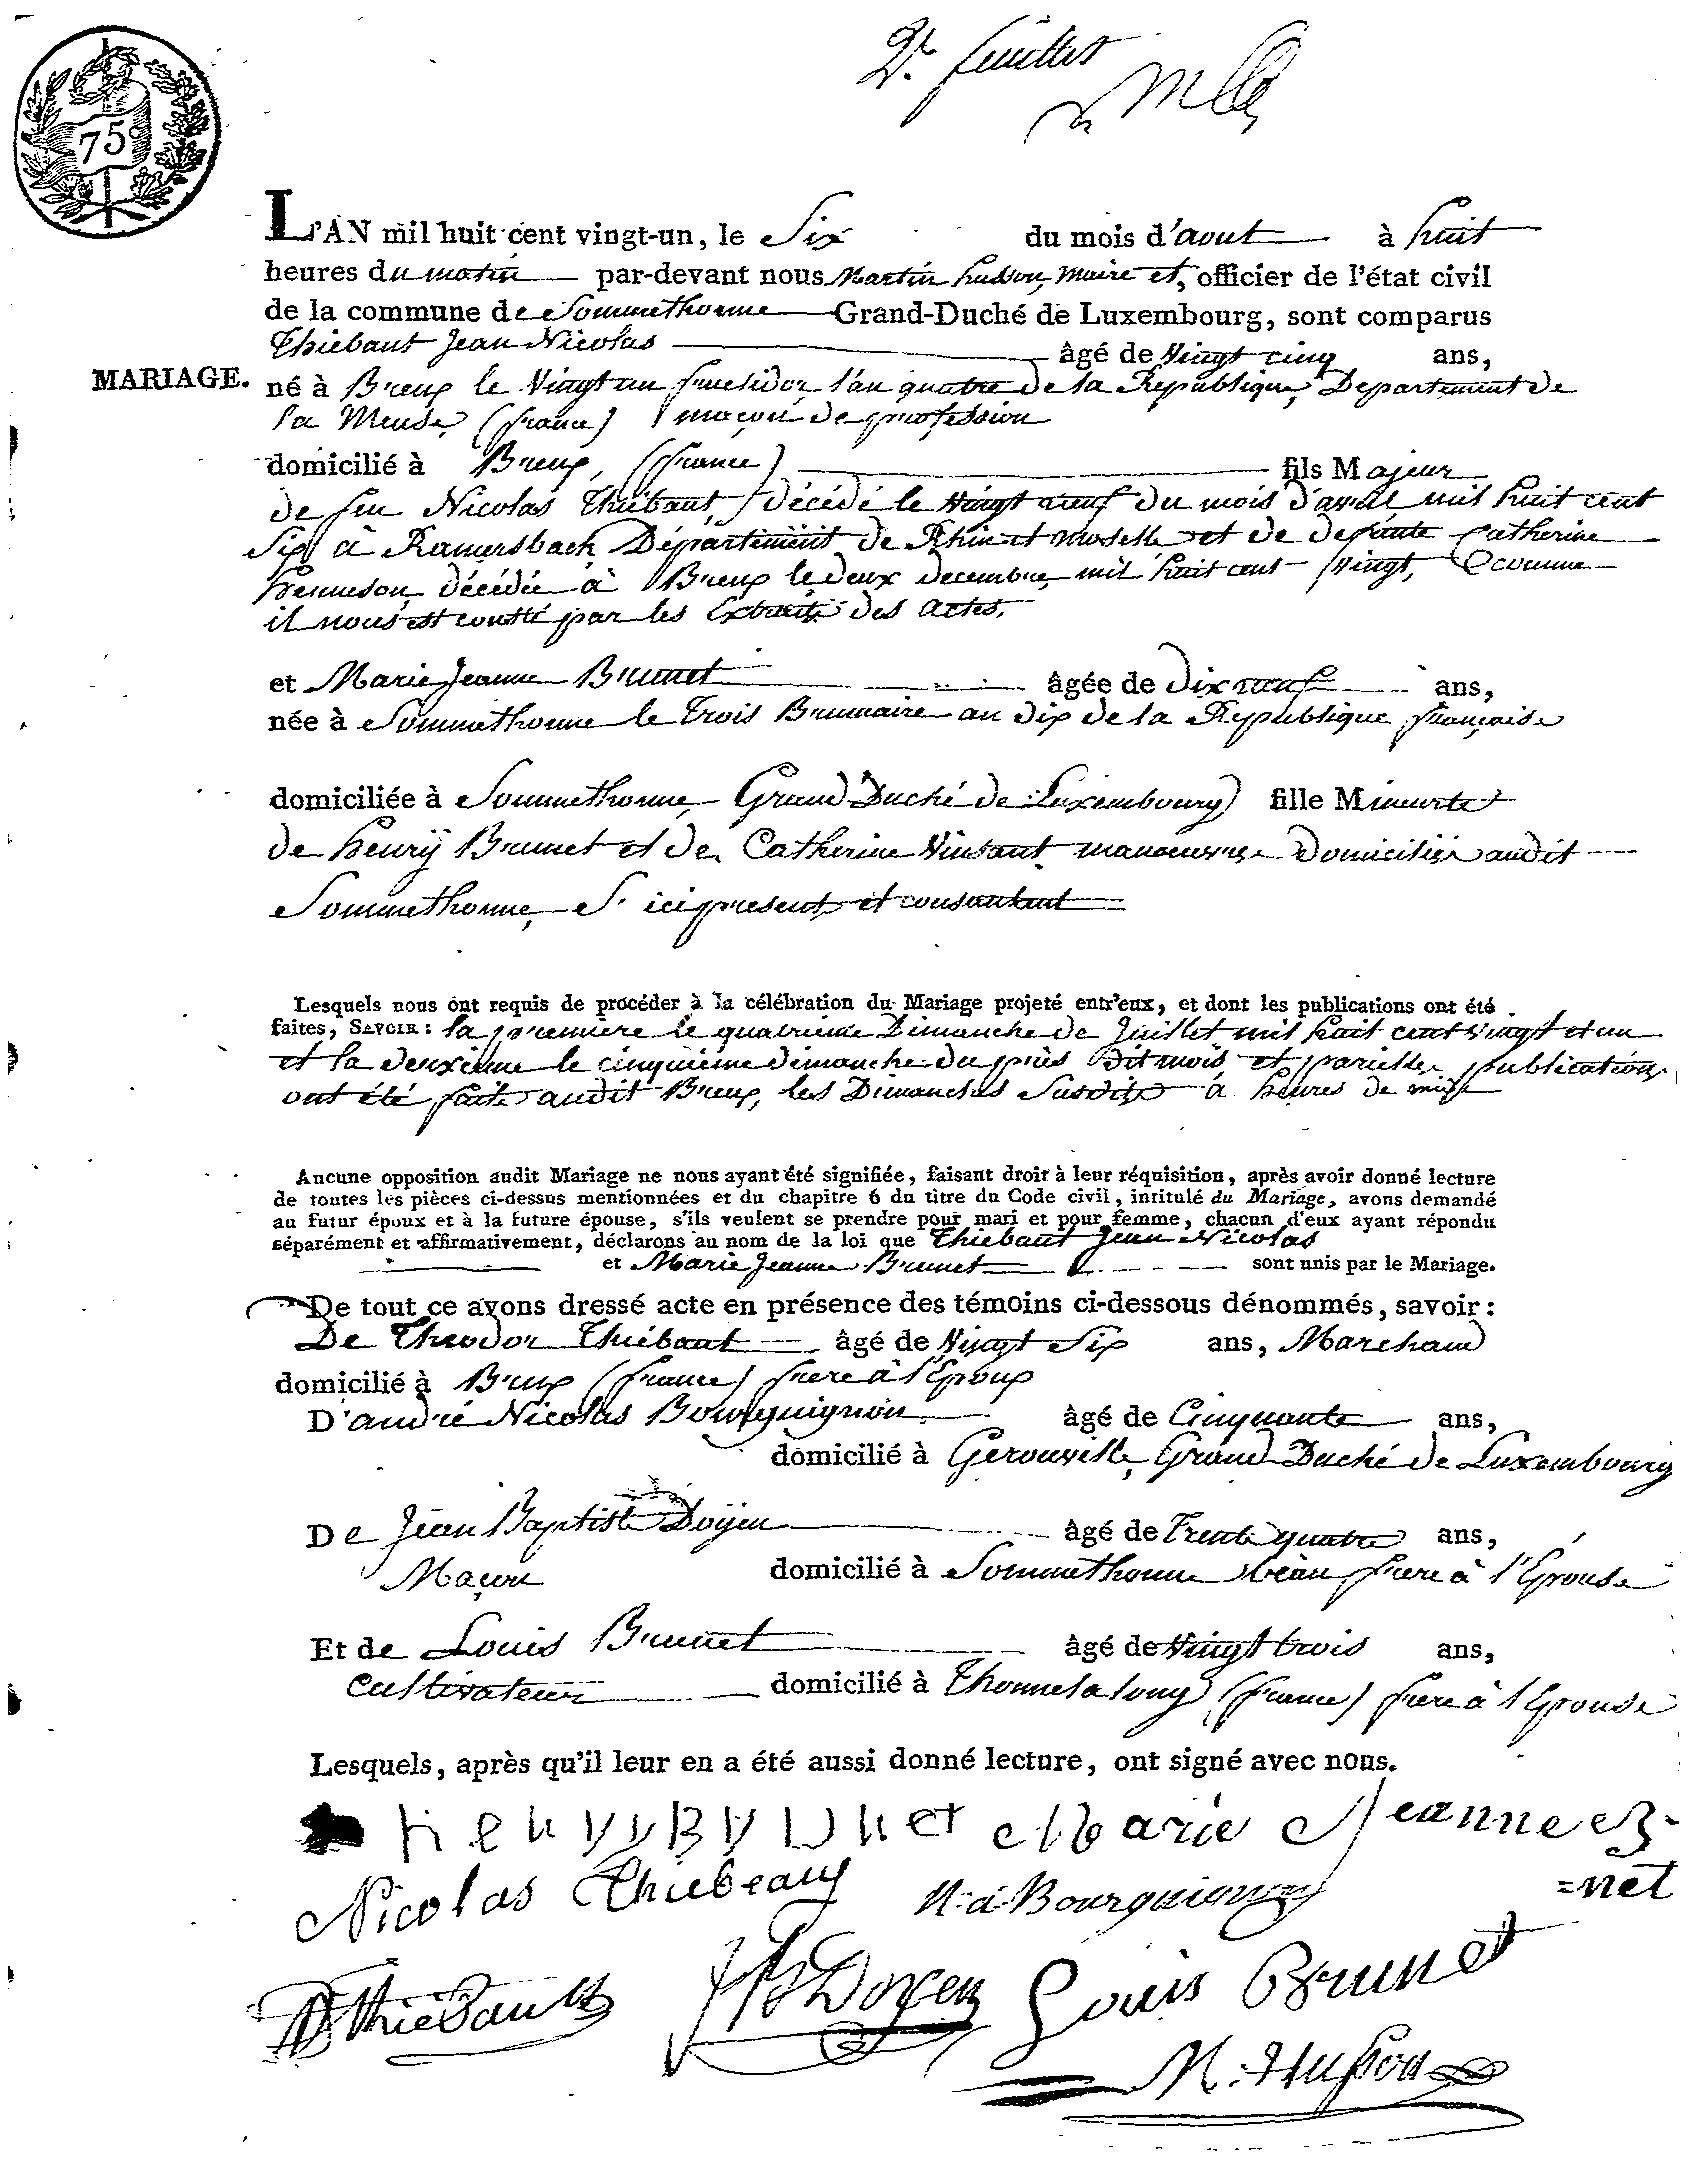 2e feuillet
75c
L'AN mil huit cent vingt-un, le Six du mois d'aout à huit
heures du matin par-devant nous Martin husson, Maire et, officier de l'état civil
de la commune de Sommethonne Grand-Duché de Luxembourg, sont comparus
Thiebaut Jean Nicolas âgé de Vingt cinq ans,
MARIAGE.
né à Breux le Vingt un fructidor, l'an quatre de la Republique, Departement de
la Meuse, (france) maçon de profession
domicilié à Breux, (france) fils Majeur
de feu Nicolas Thiébaut, décédé le vingt neuf du mois d'avril mil huit cent
Six à Ramersbach, Département de Rhin et moselle et de defunte Catherine
henneson, décédée à Breux le deux decembre, mil huit cent vingt, Comme
il nous est consté par les Extraits des actes.
et Marie Jeanne Brunet âgée de Dix neuf ans,
née à Sommethonne le Trois Brumaire an dix de la Republique française
domiciliée à Sommethonne, Grand Duché de Luxembourg fille Mineurte
de henrÿ Brunet et de Catherine Vinsant manoeuvres Domiciliés audit
Sommethonne, ici present et consantant
Lesquels nous ont requis de procéder à la célébration du Mariage projeté entr'eux, et dont les publications ont été
faites, SAVOIR: la première le quatrième Dimanche de Juillet mil huit cent vingt et un
et la deuxième le cinquième dimanche du dit mois, et pareilles publications
ont été faite audit Breux, les Dimanches Susdits à heures de midi
Aucune opposition audit Mariage ne nous ayant été signifiée, faisant droit à leur réquisition, après avoir donné lecture
de toutes les pièces ci-dessus mentionnées et du chapitre 6 du titre du Code civil, intitulé du Mariage, avons demandé
au futur époux et à la future épouse, s'ils veulent se prendre pour mari et pour femme, chacun d'eux ayant répondu
séparément et affirmativement, déclarons au nom de la loi que Thiebaut Jean Nicolas
et Marie Jeanne Brunet sont unis par le Mariage.
De tout ce avons dressé acte en présence des témoins ci-dessous dénommés, savoir:
De Theodor Thiébaut âgé de Vingt Six ans, Marchand
domicilié à Breux (france) frere à l'Epoux
D'andré Nicolas Bourguignon âgé de Cinquante ans,
domicilié à Gerouville, Grand Duché de Luxembourg
De Jean Baptiste Doÿen âgé de Trente quatre ans,
Maçon domicilié à Sommethonne beau frere à l'Epouse
Et de Louis Brunet âgé de Vingt trois ans,
Cultivateur domicilié à Thonnelalong (france) frere à l'Epouse
Lesquels, après qu'il leur en a été aussi donné lecture, ont signé avec nous.
henry Brunet Marie Jeanne B-
=net
Nicolas Thiebeaux N. a. Bourguignon
Thiebault JB Doyen Louis Brunet
M. Husson